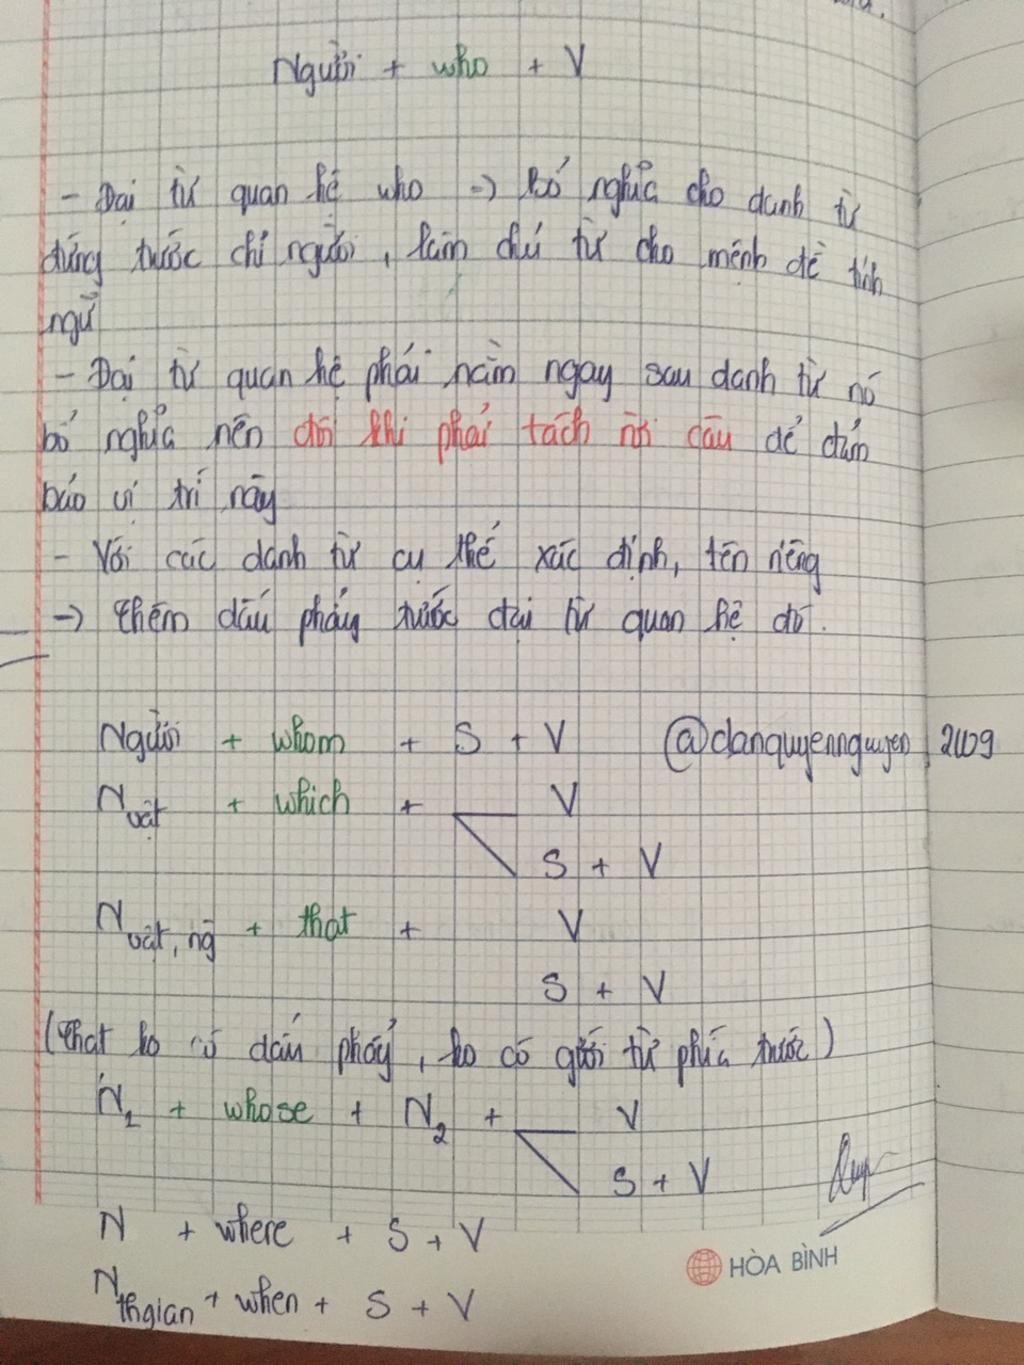 Người + who + V
- Đại từ quan hệ who -> bổ nghĩa cho danh từ
đứng trước chỉ người, làm chủ từ cho mệnh đề tính
ngữ
- Đại từ quan hệ phải nằm ngay sau danh từ nó
bổ nghĩa nên đôi khi phải tách rời câu để đảm
bảo vị trí này
- Với các danh từ cụ thể xác định, tên riêng
-> thêm dấu phẩy trước đại từ quan hệ đó.
Người + whom + S + V @danquyennguyen 2009
N vật + which + V
S + V
N vật, ng + that + V
S + V
(that ko có dấu phẩy, ko có giới từ phía trước)
N1 + whose + N2 + V
S + V
N + where + S + V
HÒA BÌNH
N thgian + when + S + V